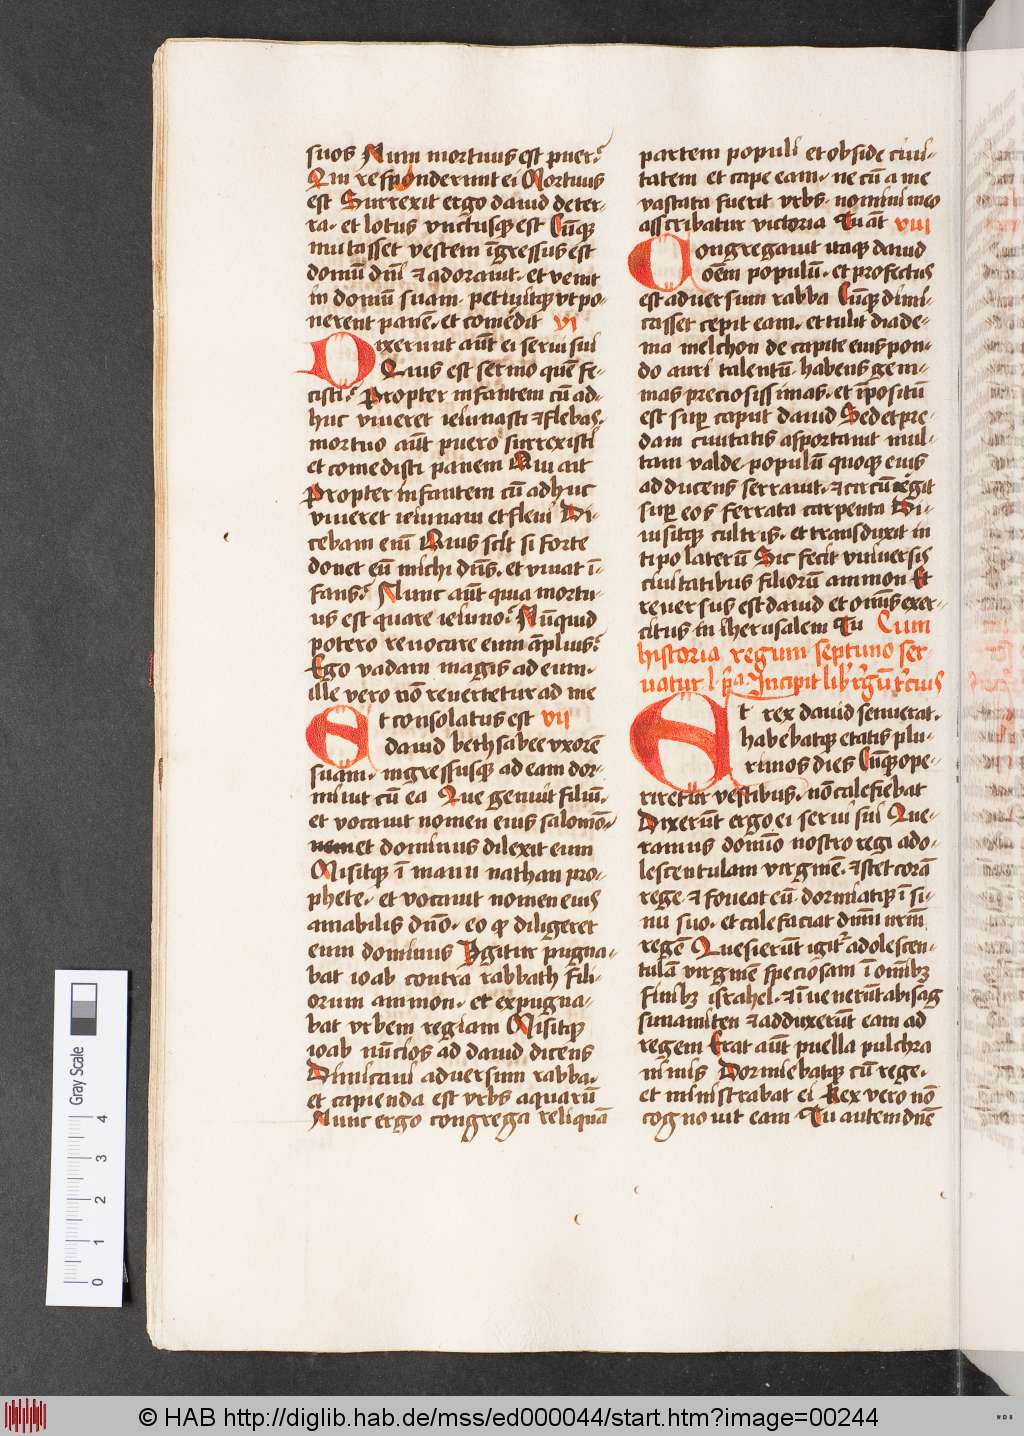 suos Num mortuus est puer?
Qui responderunt ei Mortuus
est Surrexit ergo dauid de ter-
ra. et lotus vnctusq; est Cūq;
mutasset vestem īgressus est
domū dnī et adorauit. et venit
in domū suam. petiuitq; vt po-
nerent panē. et comedit vi
Dixerunt aūt ei serui sui
Quis est sermo quē fe-
cisti? Propter infantem cū ad-
huc viueret ieiunasti et flebas.
mortuo aūt puero surrexisti
et comedisti panem Qui ait
Propter infantem cū adhuc
viueret ieiunaui et fleui Di-
cebam enī Quis scit si forte
donet eū michi dn̄s. et viuat ī-
fans? Nunc aūt quia mortu-
us est quare ieiuno? Nūquid
potero reuocare eum āplius?
Ego vadam magis ad eum.
ille vero nō reuertetur ad me
Et consolatus est vii
dauid bethsabee vxorē
suam. ingressusq; ad eam dor-
miuit cū ea Que genuit filiū.
et vocauit nomen eius salomō-
nem et dominus dilexit eum
Misitq; ī manu nathan pro-
phete. et vocauit nomen eius
amabilis dn̄o. eo q̄ diligeret
eum dominus Igitur pugna-
bat ioab contra rabbath fili-
orum ammon. et expugna-
bat vrbem regiam Misitq;
ioab nūcios ad dauid dicens
Dimicaui aduersum rabba.
et capienda est vrbs aquarū
Nunc ergo congrega reliquā
partem populi et obside ciui-
tatem et cape eam. ne cū a me
vastata fuerit vrbs. nomini meo
asscribatur victoria Tu aūt viii
Congregauit itaq; dauid
oēm populū. et profectus
est aduersum rabba Cūq; dimi-
casset cepit eam. et tulit diade-
ma melchon de capite eius pon-
do auri talentū. habens gem-
mas preciosissimas. et īpositū
est sup̄ caput dauid Sed et pre-
dam ciuitatis asportauit mul-
tam valde. populū quoq; eius
adducens serrauit. et circūegit
sup̄ eos ferrata carpenta Di-
uisitq; cultris. et transduxit in
tipo laterū Sic fecit vniuersis
ciuitatibus filiorū ammon Et
reuersus est dauid et om̄is exer-
citus in iherusalem Tu Cum
historia regum septimo ser
uatur l p̄a Incipit lib' rg̅ū t̅cius
Et rex dauid senuerat.
habebatq; etatis plu-
rimos dies Cūq; ope-
riretur vestibus. nō calefiebat
Dixerūt ergo ei serui sui Que-
ramus domīo nostro regi ado-
lescentulam virginē. et stet corā
rege. et foueat eū. dormiatq; ī si-
nu suo. et calefaciat dnm̄ nrm̄
regē Quesierūt igit' adolescen-
tulā virginē speciosam ī omīb;
finib; israhel. et īuenerūt abisag
sunamiten et adduxerūt eam ad
regem Erat aūt puella pulchra
nimis Dormiebatq; cū rege.
et ministrabat ei Rex vero nō
cognouit eam Tu autem dn̄e
Gray Scale
0 1 2 3 4
© HAB http://diglib.hab.de/mss/ed000044/start.htm?image=00244